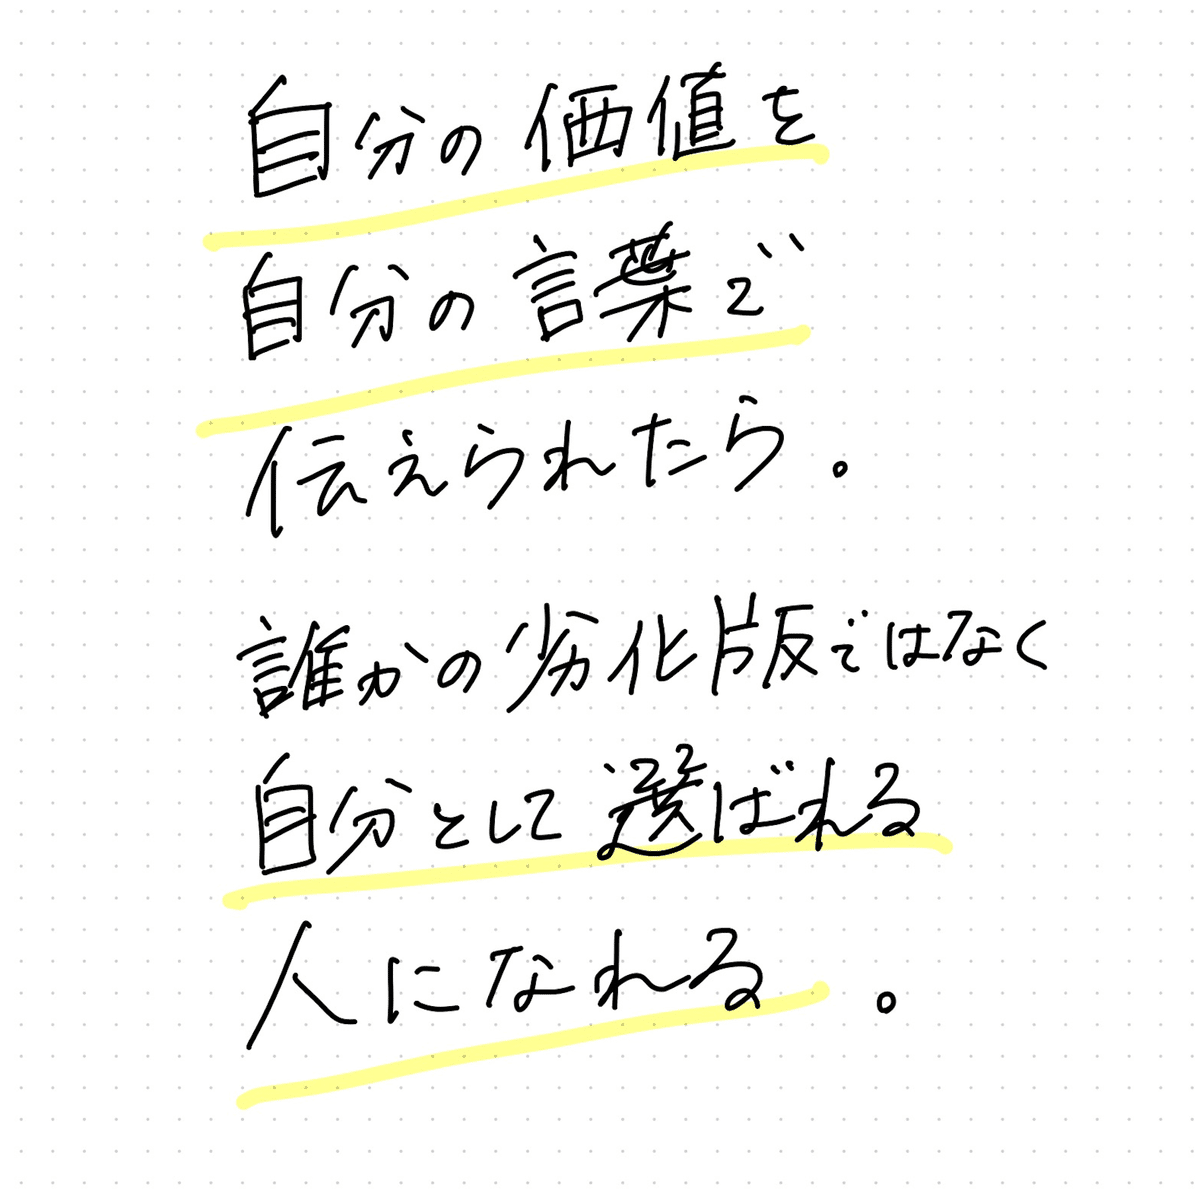 自分の価値を
自分の言葉で
伝えられたら。
誰かの劣化版ではなく
自分として選ばれる
人になれる。